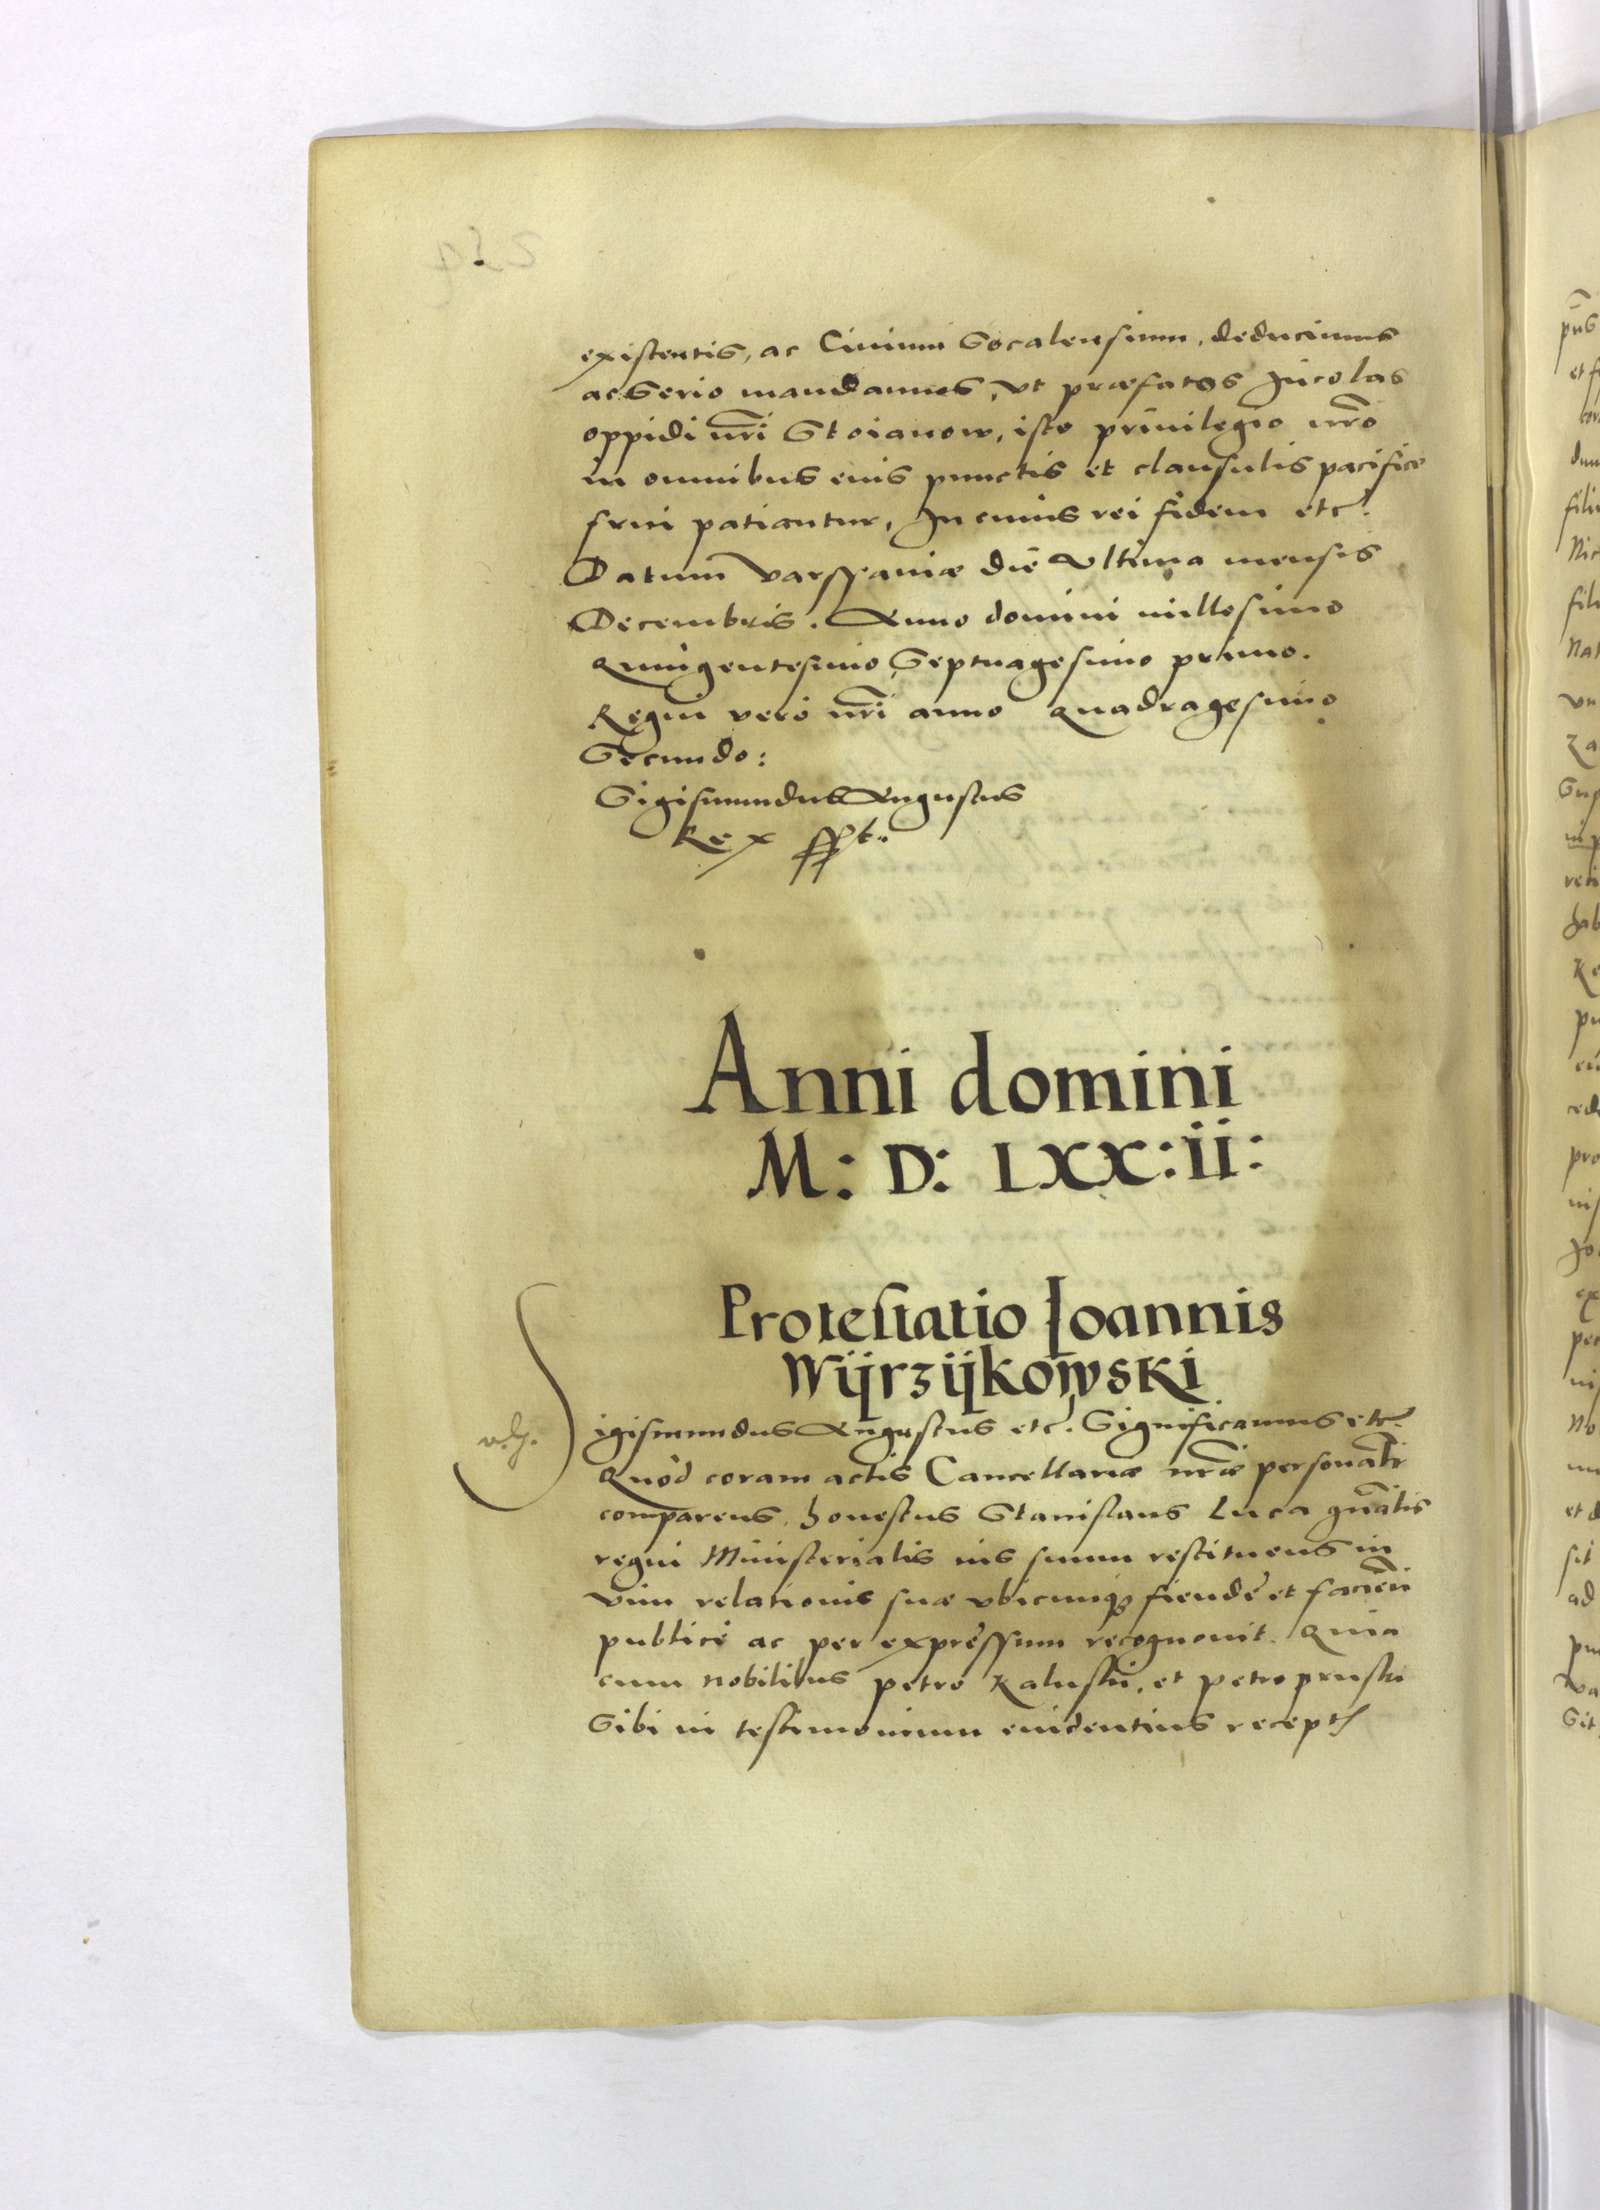 existentis, ac Ciuium Socalensium, deducimus
ac Serio mandamus, vt præfatos Incolas
oppidi nr̃i Stoianow, isto priuilegio nr̃o
in omnibus eius punctis et clausulis pacifice
frui patiantur, In cuius rei fidem etc.
Datum Varssauiæ die Vltima mensis
Decembris. Anno domini millesimo
Quingentesimo, Septuagesimo primo.
Regni vero nr̃i anno Quadragesimo
Secundo:
Sigismundus Augustus
Rex sspt.
Anni domini
M: D: LXX:ii:
Proteſtatio Ioannis
Wÿrzÿkowski
Sigismundus Augustus etc. Significamus etc.
Quod coram actis Cancellariæ nr̃æ personal̃r
comparens, honestus Stanislaus Luca gñalis
regni Ministerialis ius suum restituens in
vim relationis suæ vbicunq3 fiendẽ et faciẽn
publice ac per expressum recognouit. Quia
cum nobilibus petro Kaluski, et petro pruski
Sibi in testimonium euidentius recept